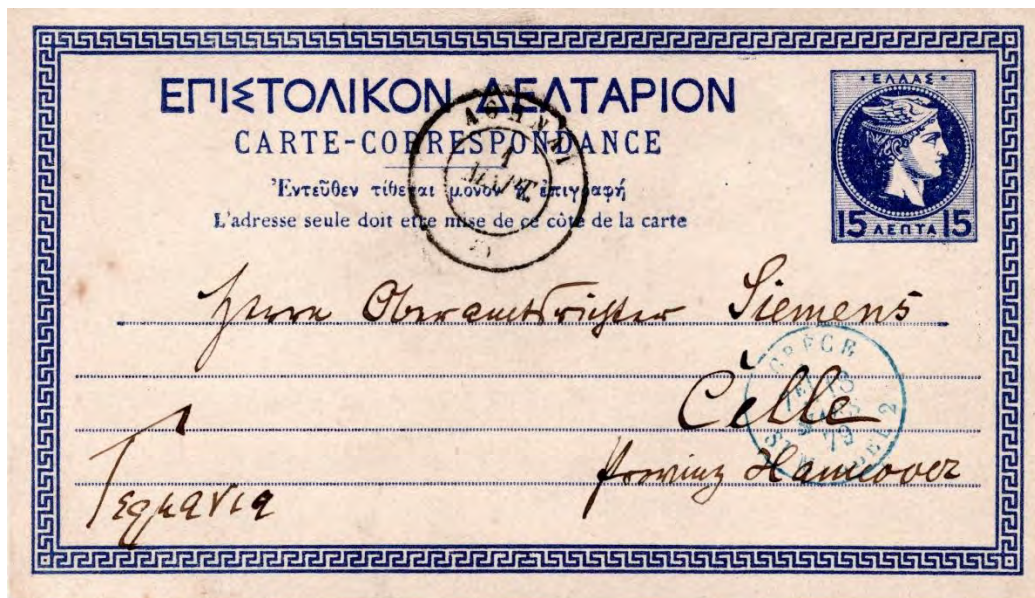 ΕΠΙΣΤΟΛΙΚΟΝ ΔΕΛΤΑΡΙΟΝ
CARTE-CORRESPONDANCE
Ἐντεῦθεν τίθεται μόνον ἡ ἐπιγραφή
L'adresse seule doit etre mise de ce côté de la carte
• ΕΛΛΑΣ •
15 ΛΕΠΤΑ 15
ΑΘΗΝΑΙ
1
ΜΑΡΤ.
Herrn Oberamtsrichter Siemens
Celle
Provinz Hannover
Γερμανία
GRÈCE
13
MARS
79